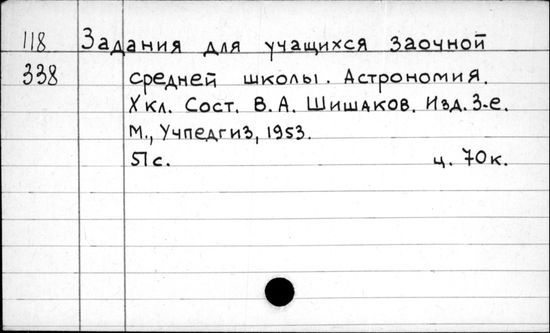 118 Задания для учащихся заочной
338 средней школы. Астрономия.
X кл. Сост. В.А. Шишаков. Изд. 3-е.
М., Учпедгиз, 1953.
51с. ц. 70к.